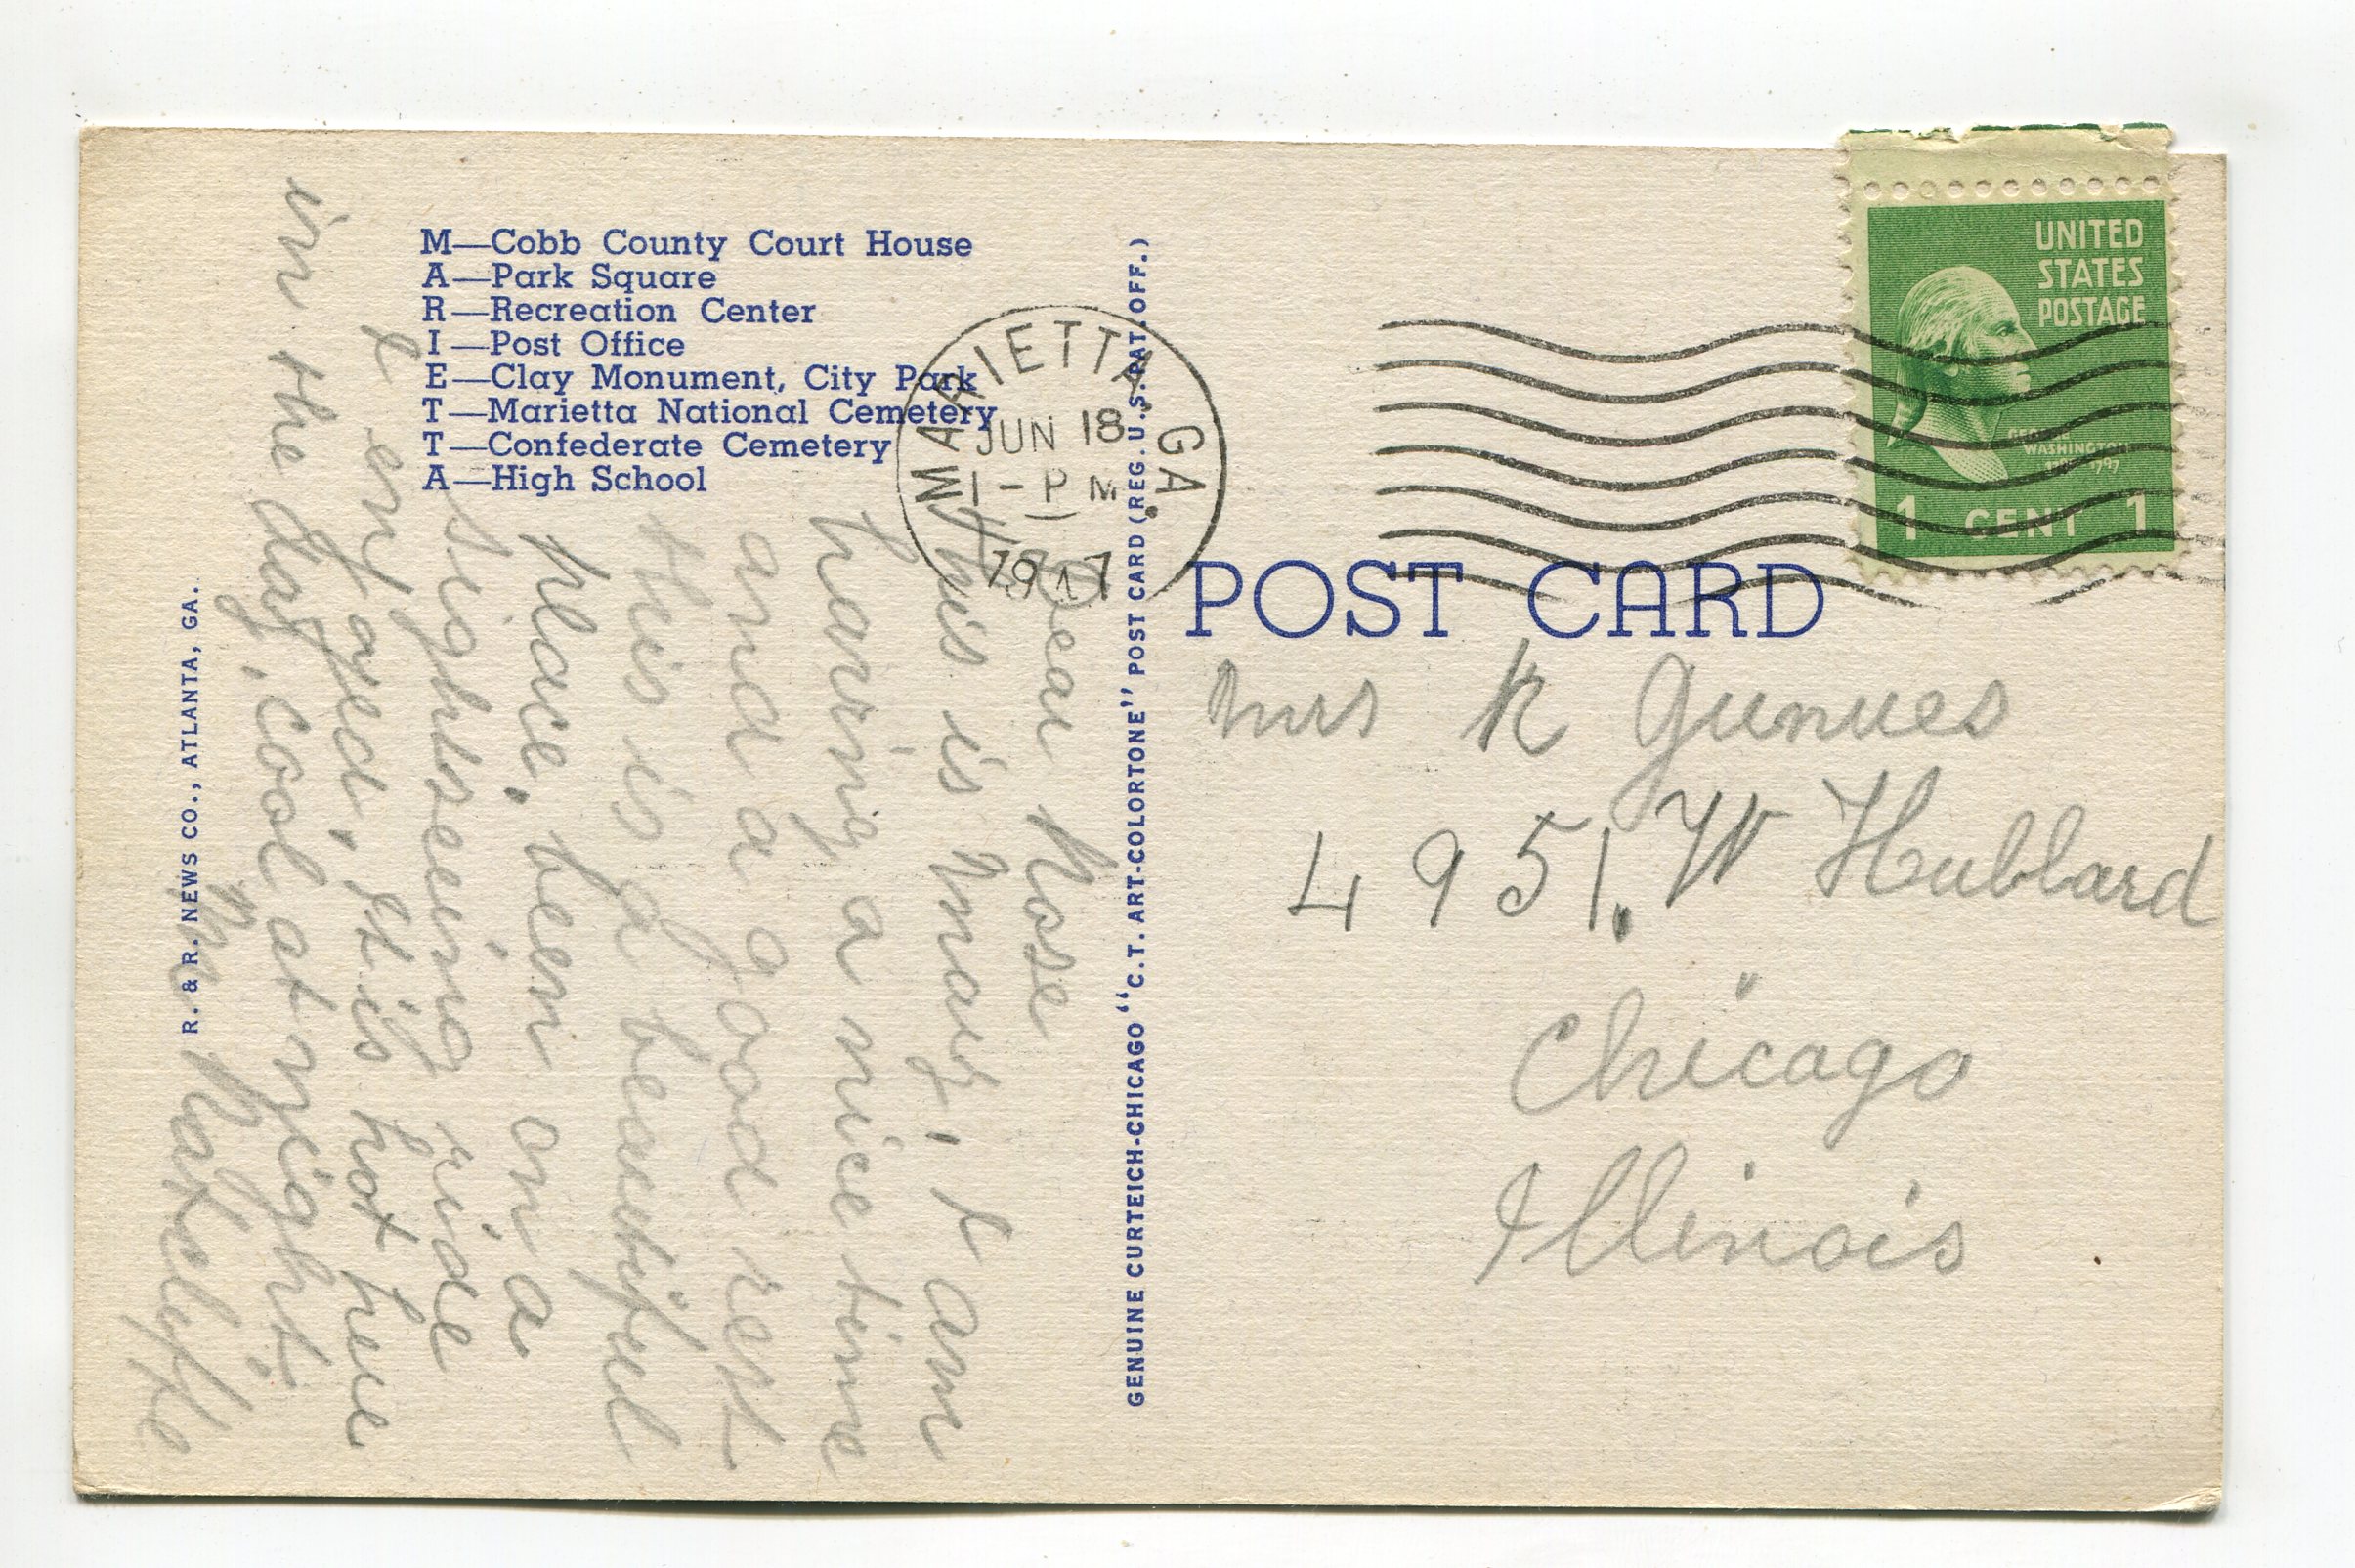 M—Cobb County Court House
A—Park Square
R—Recreation Center
I—Post Office
E—Clay Monument, City Park
T—Marietta National Cemetery
T—Confederate Cemetery
A—High School
MARIETTA, GA.
JUN 18
1-PM
1947
UNITED
STATES
POSTAGE
GEORGE
WASHINGTON
1 CENT 1
POST CARD
Dear Rose
this is Mary, I am
having a nice time
and a good rest
this is a beautiful
place, been on a
sightseeing ride
I enjoyed, it is hot here
in the day, cool at night.
Mrs K Gunues
4951. W Hubbard
Chicago
Illinois
GENUINE CURTEICH-CHICAGO "C.T. ART-COLORTONE" POST CARD (REG. U.S. PAT. OFF.)
R. & R. NEWS CO., ATLANTA, GA.